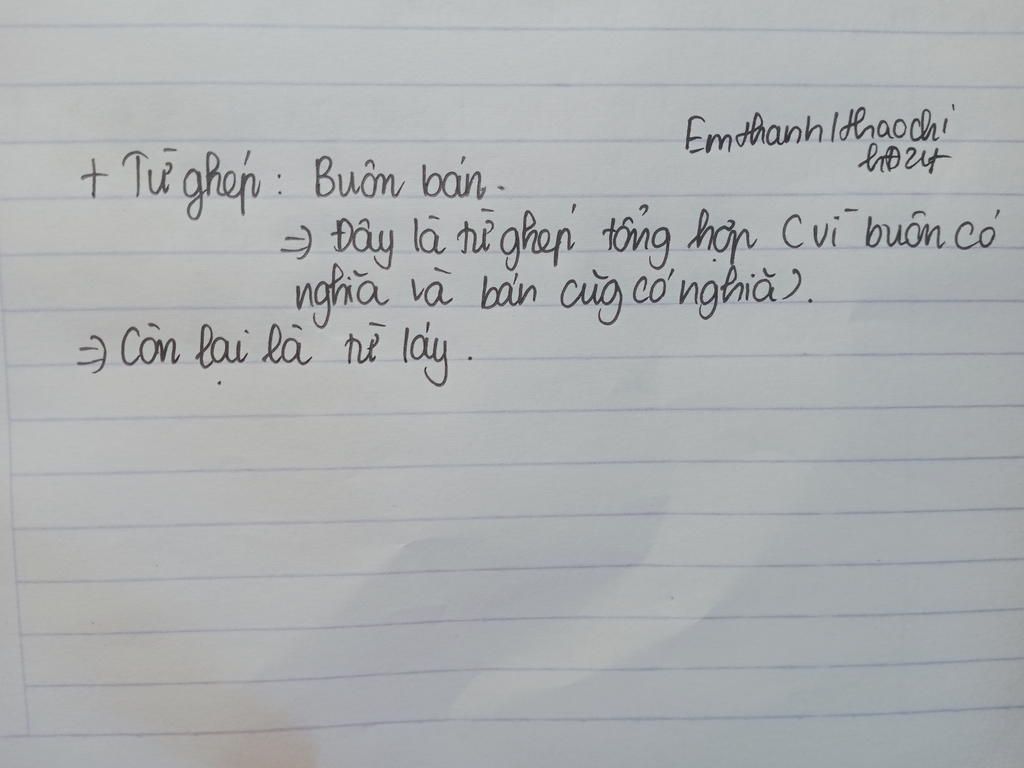 Emthanh/thaochi
h024
+ Từ ghép: Buôn bán.
=> Đây là từ ghép tổng hợp (vì buôn có
nghĩa và bán cũg có nghĩa).
=> Còn lại là từ láy.